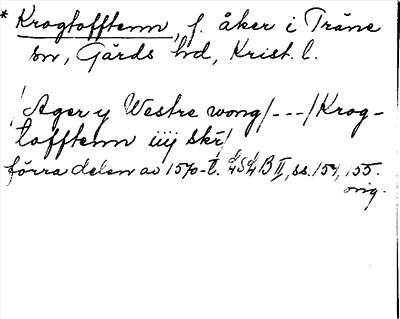 * Krogtofftenn, f. åker i Träne
sn, Gärds hd, Krist. l.
/Ager y Westre wong/---/Krog-
tofftenn iiij skr/
förra delen av 1570-t. B II, ss. 154, 155.
orig.